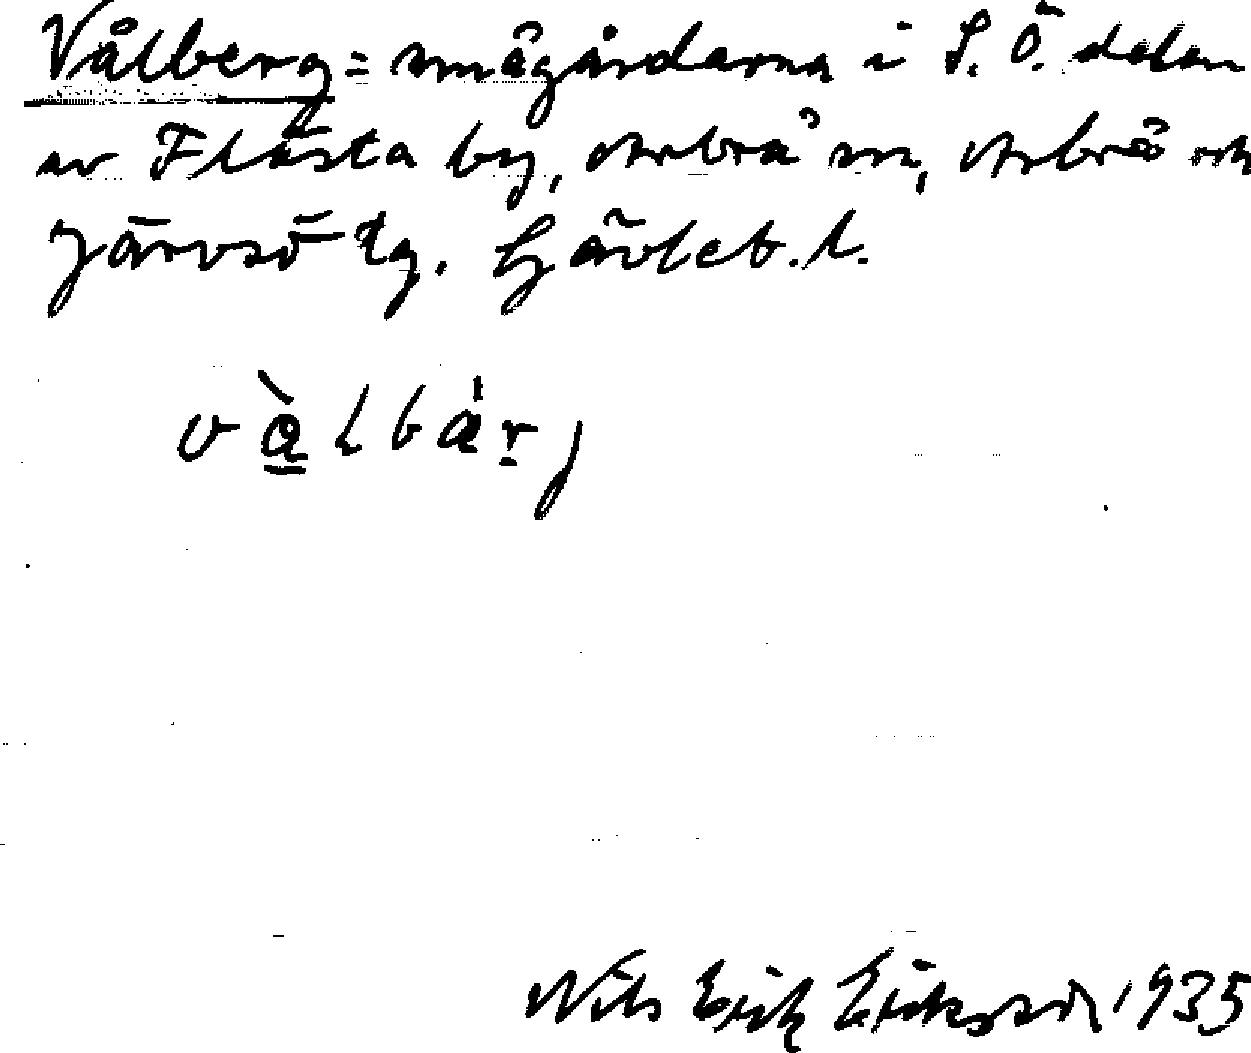 Vålberg = smågårdarna i S. Ö. delen
av Flästa by, Arbrå sn, Arbrå och
Järvsö tg. Gävleb. l.
vàlbár̠j
Nils Erik Eriksson 1935